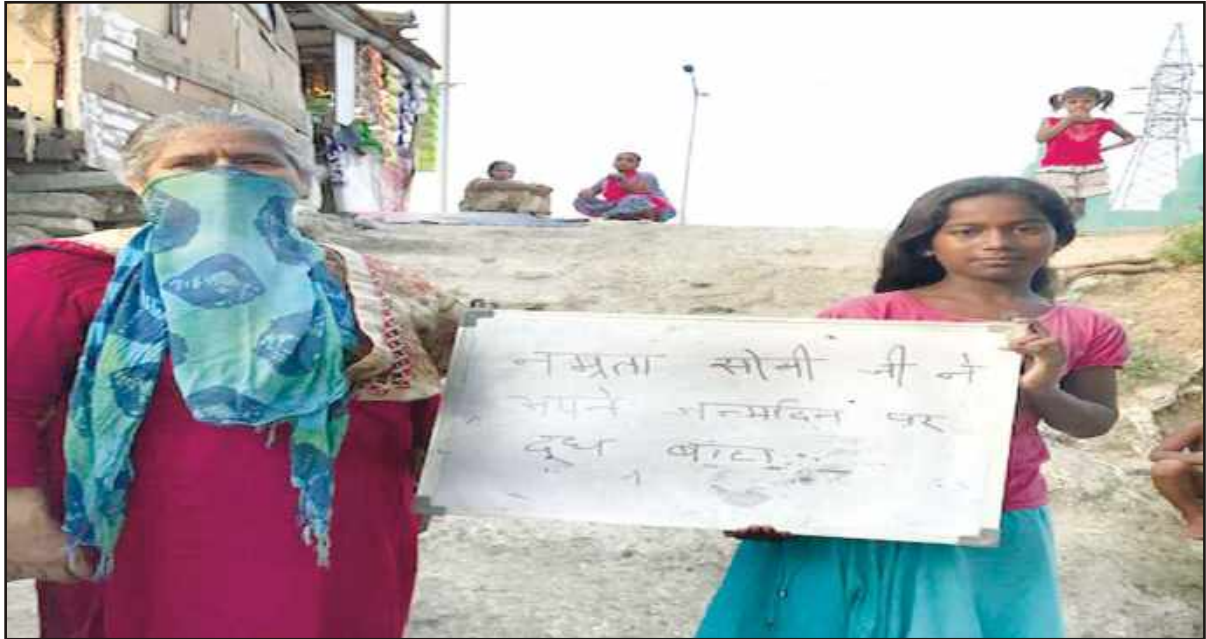 नम्रता सोनी जी ने
अपने जन्मदिन पर
दूध बांटा...